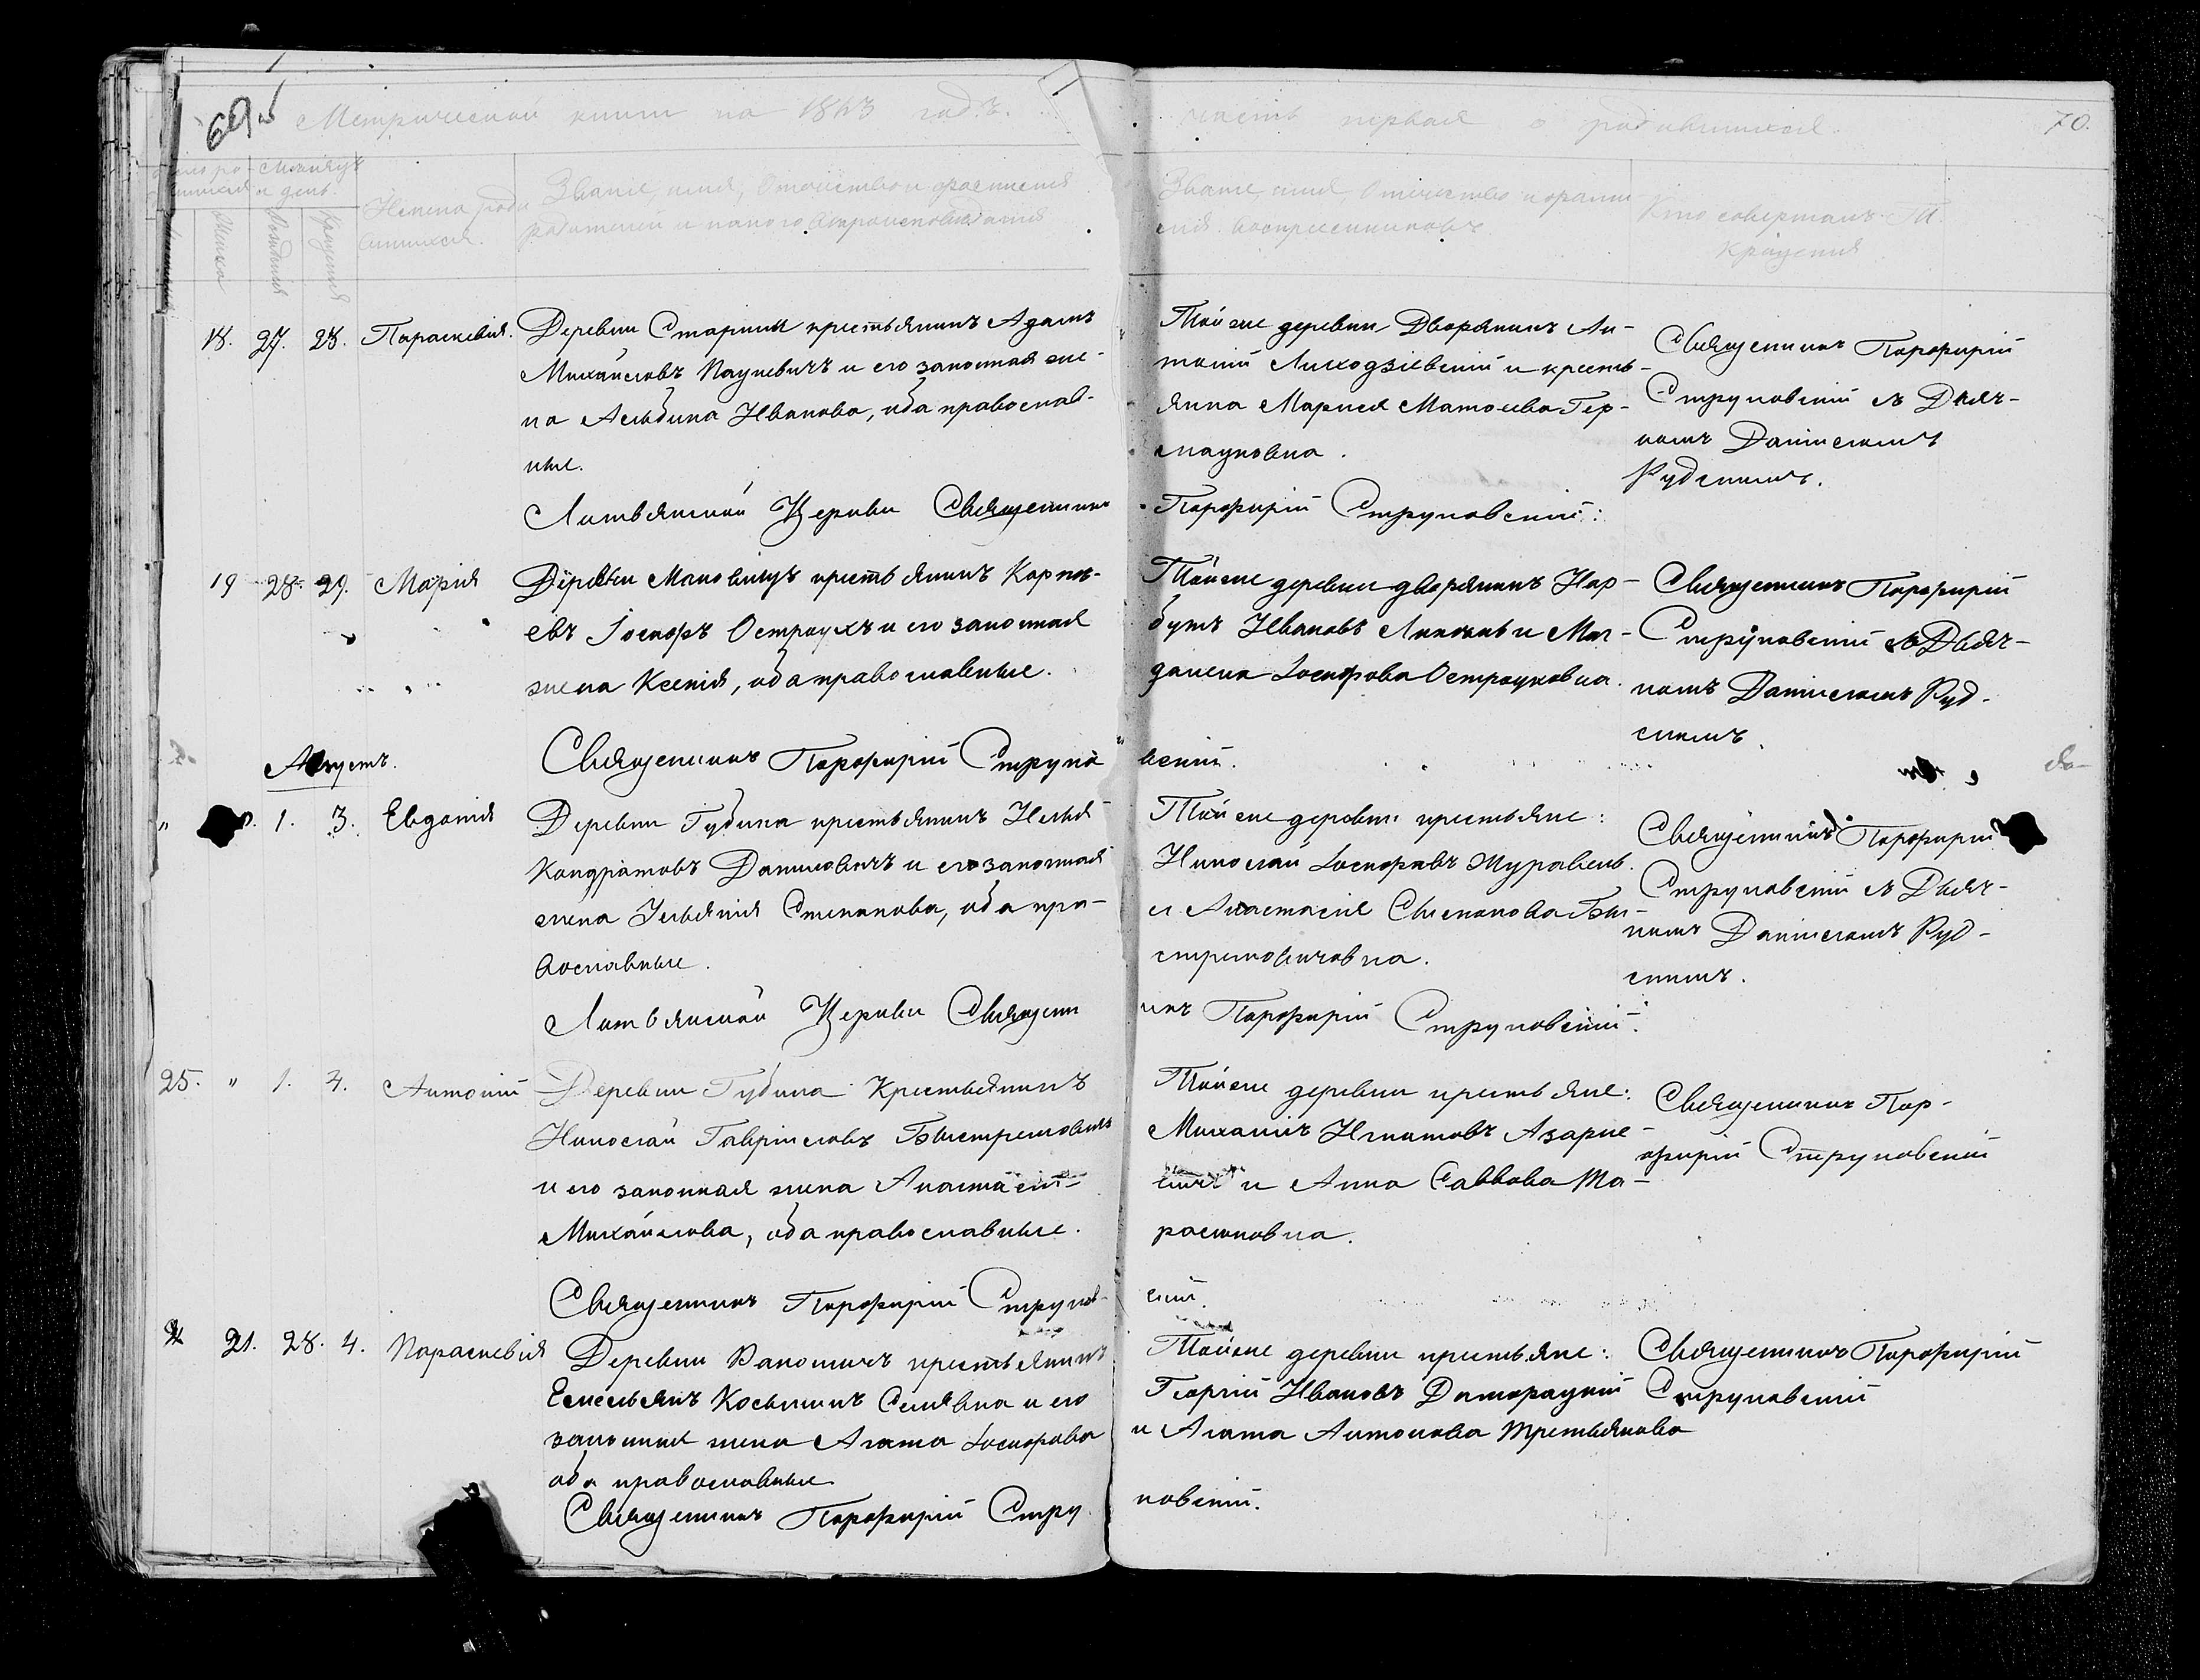 69 об
Метрической книги на 1843 годъ.
часть первая о родившихся.
70.
Мѣсяцъ и день.
Женска
Рожденія
Крещенія
Имена роди
вшихся.
Званіе, имя, Отечество и фамилія
родителей и какого Вѣроисповѣданія
Званіе, имя, Отечество и фами
лія воспріемниковъ.
Кто совершалъ Т.
Крещенія
18. 27. 28. Параскевія.
Деревни Старини крестьянинъ Адамъ
Михайловъ Пацкевичъ и его законная же-
на Альбина Иванова, оба православ-
ные.
Литвянской Церкви Священникъ
Тойже деревни Дворянинъ Ан-
тоній Лиходзіевскій и кресть-
янка Марися Матѳіева Гер-
мацковна.
Порфирій Струковскій:
Священникъ Порфирій
Струковскій съ Дьяч-
комъ Даніиломъ
Рудскимъ.
19 28. 29. Марія
Деревни крестьянинъ Карпов-
евъ Іосифъ Остроухъ и его законная
жена Ксенія, оба православные.
Священникъ Порфирій Струко
Тойже деревни дворянинъ Нар-
бутъ Ивановъ и Маг-
далена Іосифова Остроуховна.
вскій.
Священникъ Порфирій
Струковскій съ Дьяч-
комъ Даніиломъ Руд-
скимъ.
Августъ.
" 1. 3. Евдокія
Деревни Губина крестьянинъ Илья
Кондратовъ Даниловичъ и его законная
жена Ульянія Степанова, оба пра-
вославные.
Литвянской Церкви Священн
Тойже деревни крестьяне:
Николай Іосифовъ Журавель
и Анастасія Степанова Бы-
стримовичовна.
икъ Порфирій Струковскій.
Священникъ Порфирій
Струковскій съ Дьяч-
комъ Даніиломъ Руд-
скимъ.
25. " 1. 4. Антоній
Деревни Губина Крестьянинъ
Николай Гавріиловъ Быстримовичъ
и его законная жена Анастасія
Михайлова, оба православные.
Священникъ Порфирій Струков-
Тойже деревни крестьяне:
Михаилъ Игнатовъ Азарке-
вичъ и Анна Саввова Та-
расиковна.
скій.
Священникъ Пор-
фирій Струковскій
21. 28. 4. Параскевія
Деревни Ракошичъ крестьянинъ
Емельянъ Косьминъ Сплявка и его
законная жена Агата Іосифова
оба православные
Священникъ Порфирій Стру
Тойже деревни крестьяне:
Георгій Ивановъ Доморацкій
и Агата Антонова Третьякова
ковскій.
Священникъ Порфирій
Струковскій